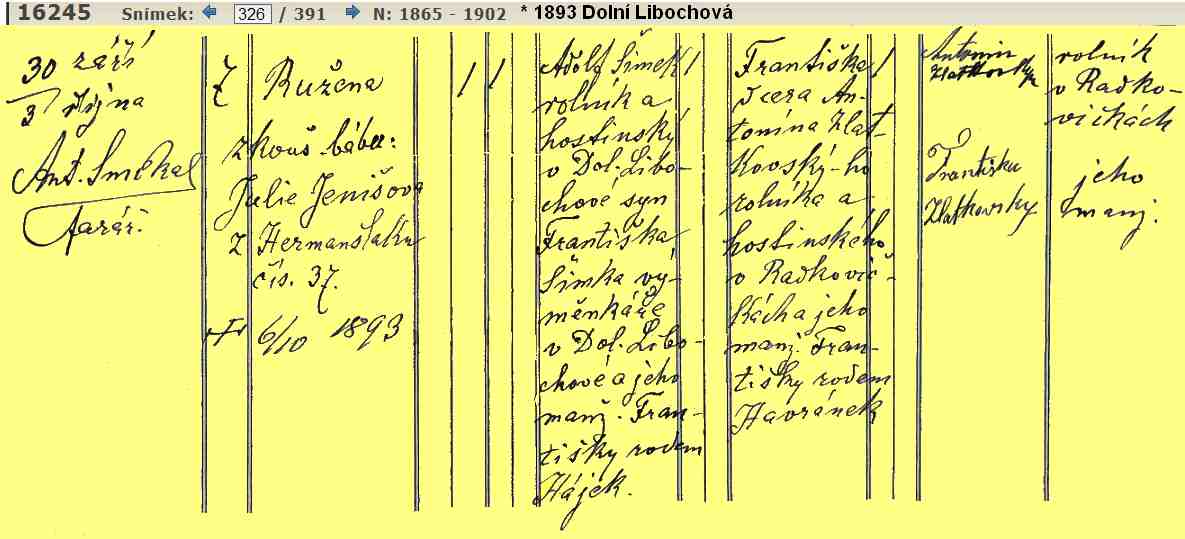 16245 Snímek: 326 / 391 N: 1865 - 1902 * 1893 Dolní Libochová
30 září
3/ října
Ant. Smékal
farář.
7
Ružena
zkouš. bába:
Julie Jenišova
z Heřmanšlaku
čís. 37.
† 6/10 1893
1 1
Adolf Šimek 1
rolník a
hostinský
v Dol. Libo-
chové syn
Františka
Šimka vý-
měnkáře
v Dol. Libo-
chové a jeho
manž. Fran-
tišky rodem
Hájek.
Františka 1
dcera An-
tonína Zlat-
kovský-ho
rolníka a
hostinského
v Radkovič-
kách a jeho
manž. Fran-
tišky rodem
Havránek
Antonin
Zlatkovský
Františka
Zlatkovsky
rolník
v Radko-
vičkách
jeho
manž.